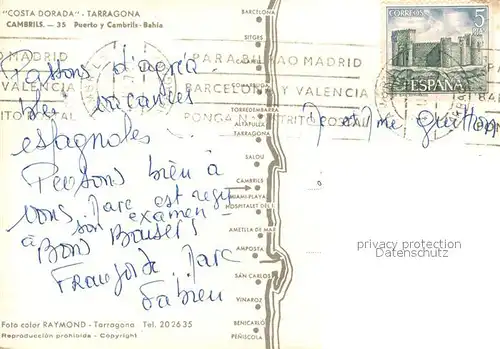 "COSTA DORADA" - TARRAGONA
CAMBRILS. - 35 Puerto y Cambrils-Bahia
Passons d'agréa
bles vacances
espagnoles
Pensons bien à
vous. Marc est reçu
à son examen -
Bons Baisers
Françoise Marc
Fabien
Foto color RAYMOND - Tarragona Tel. 202635
Reproducción prohibida - Copyright
BARCELONA
SITGES
TORREDEMBARRA
ALTAFULLA
TARRAGONA
SALOU
CAMBRILS
MIAMI-PLAYA
HOSPITALET DEL I.
AMETLLA DE MAR
AMPOSTA
SAN CARLOS
VINAROZ
BENICARLO
PEÑISCOLA
PARA BILBAO MADRID
BARCELONA Y VALENCIA
PONGA DISTRITO POSTAL
CORREOS
5 PTA
ESPAÑA
M et Me
privacy protection
Datenschutz